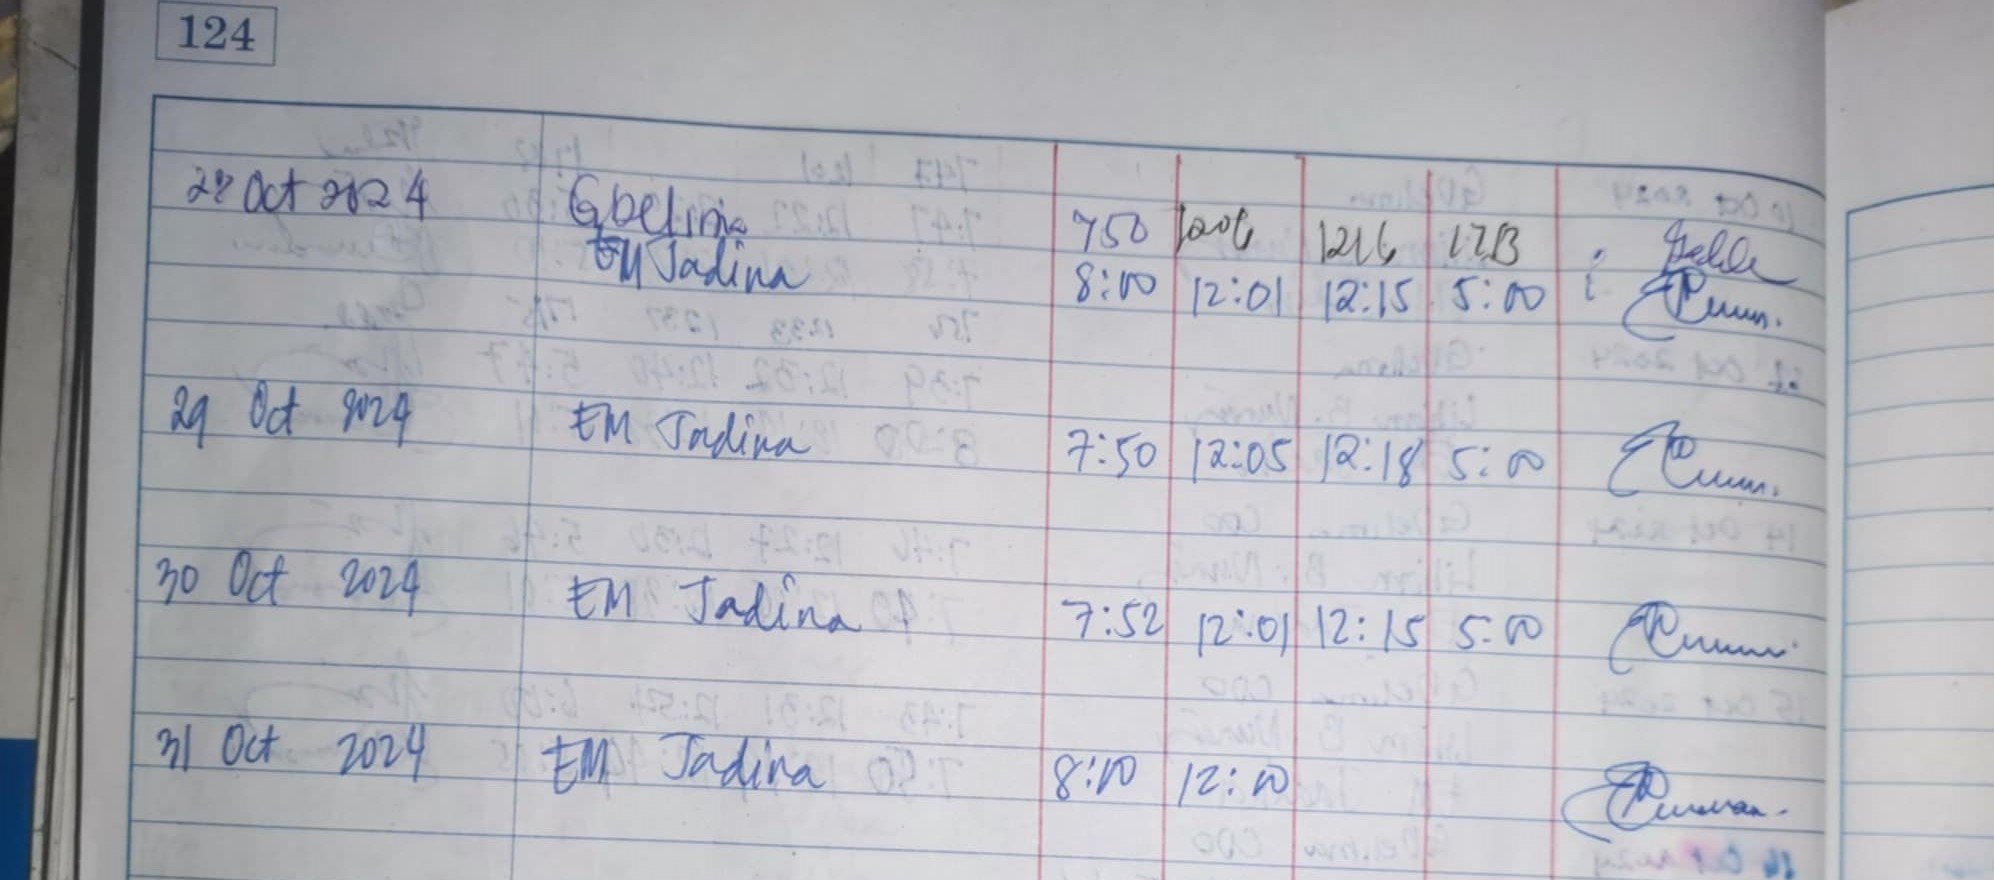 124
28 Oct 2024 GDelima 750 1206 1216
EM Jadina 8:00 12:01 12:15 5:00
29 Oct 2024 EM Jadina 7:50 12:05 12:18 5:00
30 Oct 2024 EM Jadina 7:52 12:01 12:15 5:00
31 Oct 2024 EM Jadina 8:00 12:00